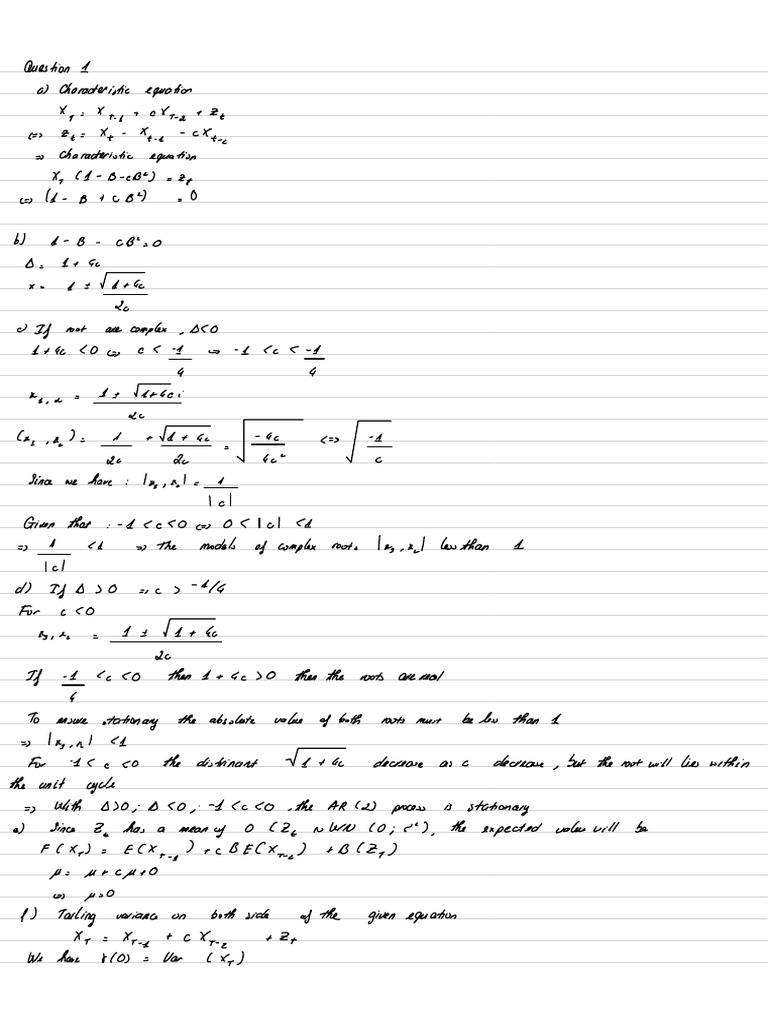 Question 1
a) Characteristic equation
X_T = X_{T-1} + cX_{T-2} + Z_t
<=> Z_t = X_t - X_{t-1} - cX_{t-c}
=> Characteristic equation
X_T (1 - B - cB²) = Z_t
<=> (1 - B + cB²) = 0
b) 1 - B - cB² = 0
Δ = 1 + 4c
x = 1 ± √(1+4c) / 2c
c) If root are complex, Δ<0
1 + 4c < 0 <=> c < -1/4 => -1 < c < -1/4
x_{1,2} = (1 ± √(1+4c) i) / 2c
(x_1, x_2) = 1/2c + √(1+4c)/2c = √(-4c/4c²) <=> √(-1/c)
Since we have : |x_1, x_2| = 1/|c|
Given that : -1 < c < 0 <=> 0 < |c| < 1
=> 1/|c| < 1 => The models of complex roots |x_1, x_2| less than 1
d) If Δ > 0 => c > -1/4
For c < 0
x_1, x_2 = (1 ± √(1+4c)) / 2c
If -1/4 < c < 0 then 1 + 4c > 0 then the roots are real
To ensure stationary the absolute value of both roots must be less than 1
=> |x_1, x_2| < 1
For -1 < c < 0 the distrinant √(1+4c) decrease as c decrease, but the root will lies within
the unit cycle
=> With Δ>0; Δ<0; -1 < c < 0, the AR(2) process is stationary
e) Since Z_t has a mean of 0 (Z_t ~ WN (0; σ²), the expected value will be
E(X_T) = E(X_{T-1}) + c BE(X_{T-2}) + B(Z_T)
μ = μ + cμ + 0
<=> μ = 0
f) Tailing variance on both side of the given equation
X_T = X_{T-1} + c X_{T-2} + Z_t
We have γ(0) = Var (X_T)